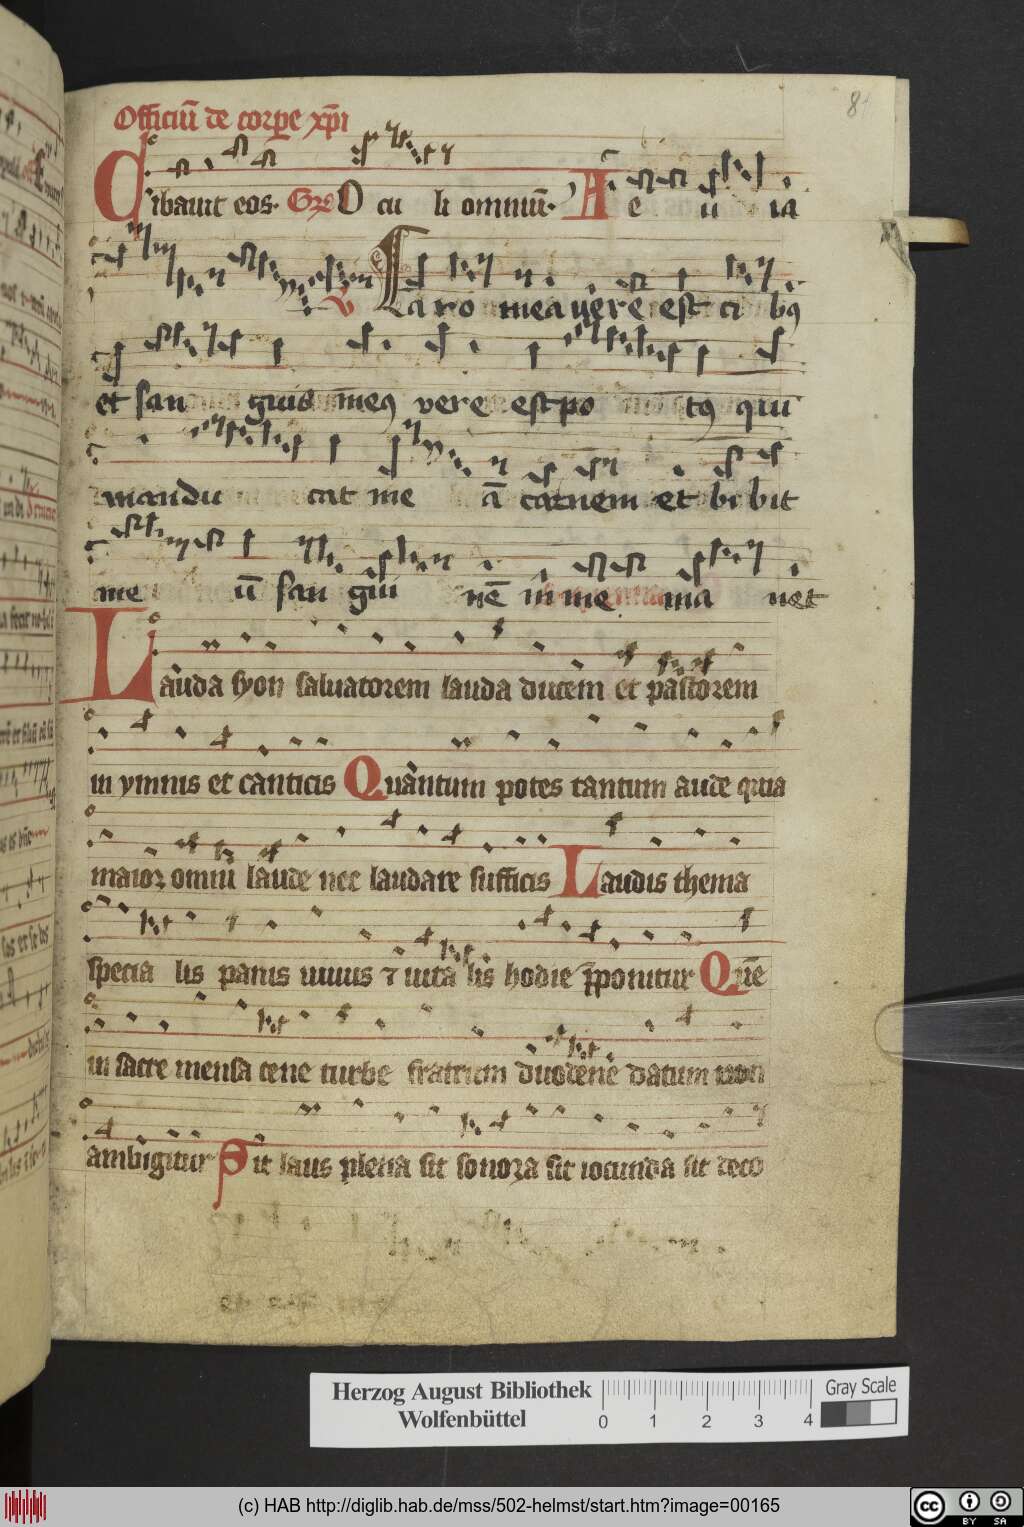 Officiū de corpe xp̄i
81
Cibauit eos. Gr̄ O cu li omniū. A e u ia
V Caro mea vere est ci bꝰ
et san guis meꝰ vere est po tꝰ qui
mandu cat me ā carnem et bi bit
me ū san gui nē in me ma net
Lauda syon saluatorem lauda ducem et pastorem
in ymnis et canticis Quantum potes tantum aude quia
maior omni laude nec laudare sufficis Laudis thema
specia lis panis viuus ⁊ vita lis hodie p̄ponitur Quē
in sacre mensa cene turbe fratrum duodene datum non
ambigitur Sit laus plena sit sonora sit iocunda sit deco
Herzog August Bibliothek
Wolfenbüttel
0 1 2 3 4
Gray Scale
(c) HAB http://diglib.hab.de/mss/502-helmst/start.htm?image=00165
cc BY SA